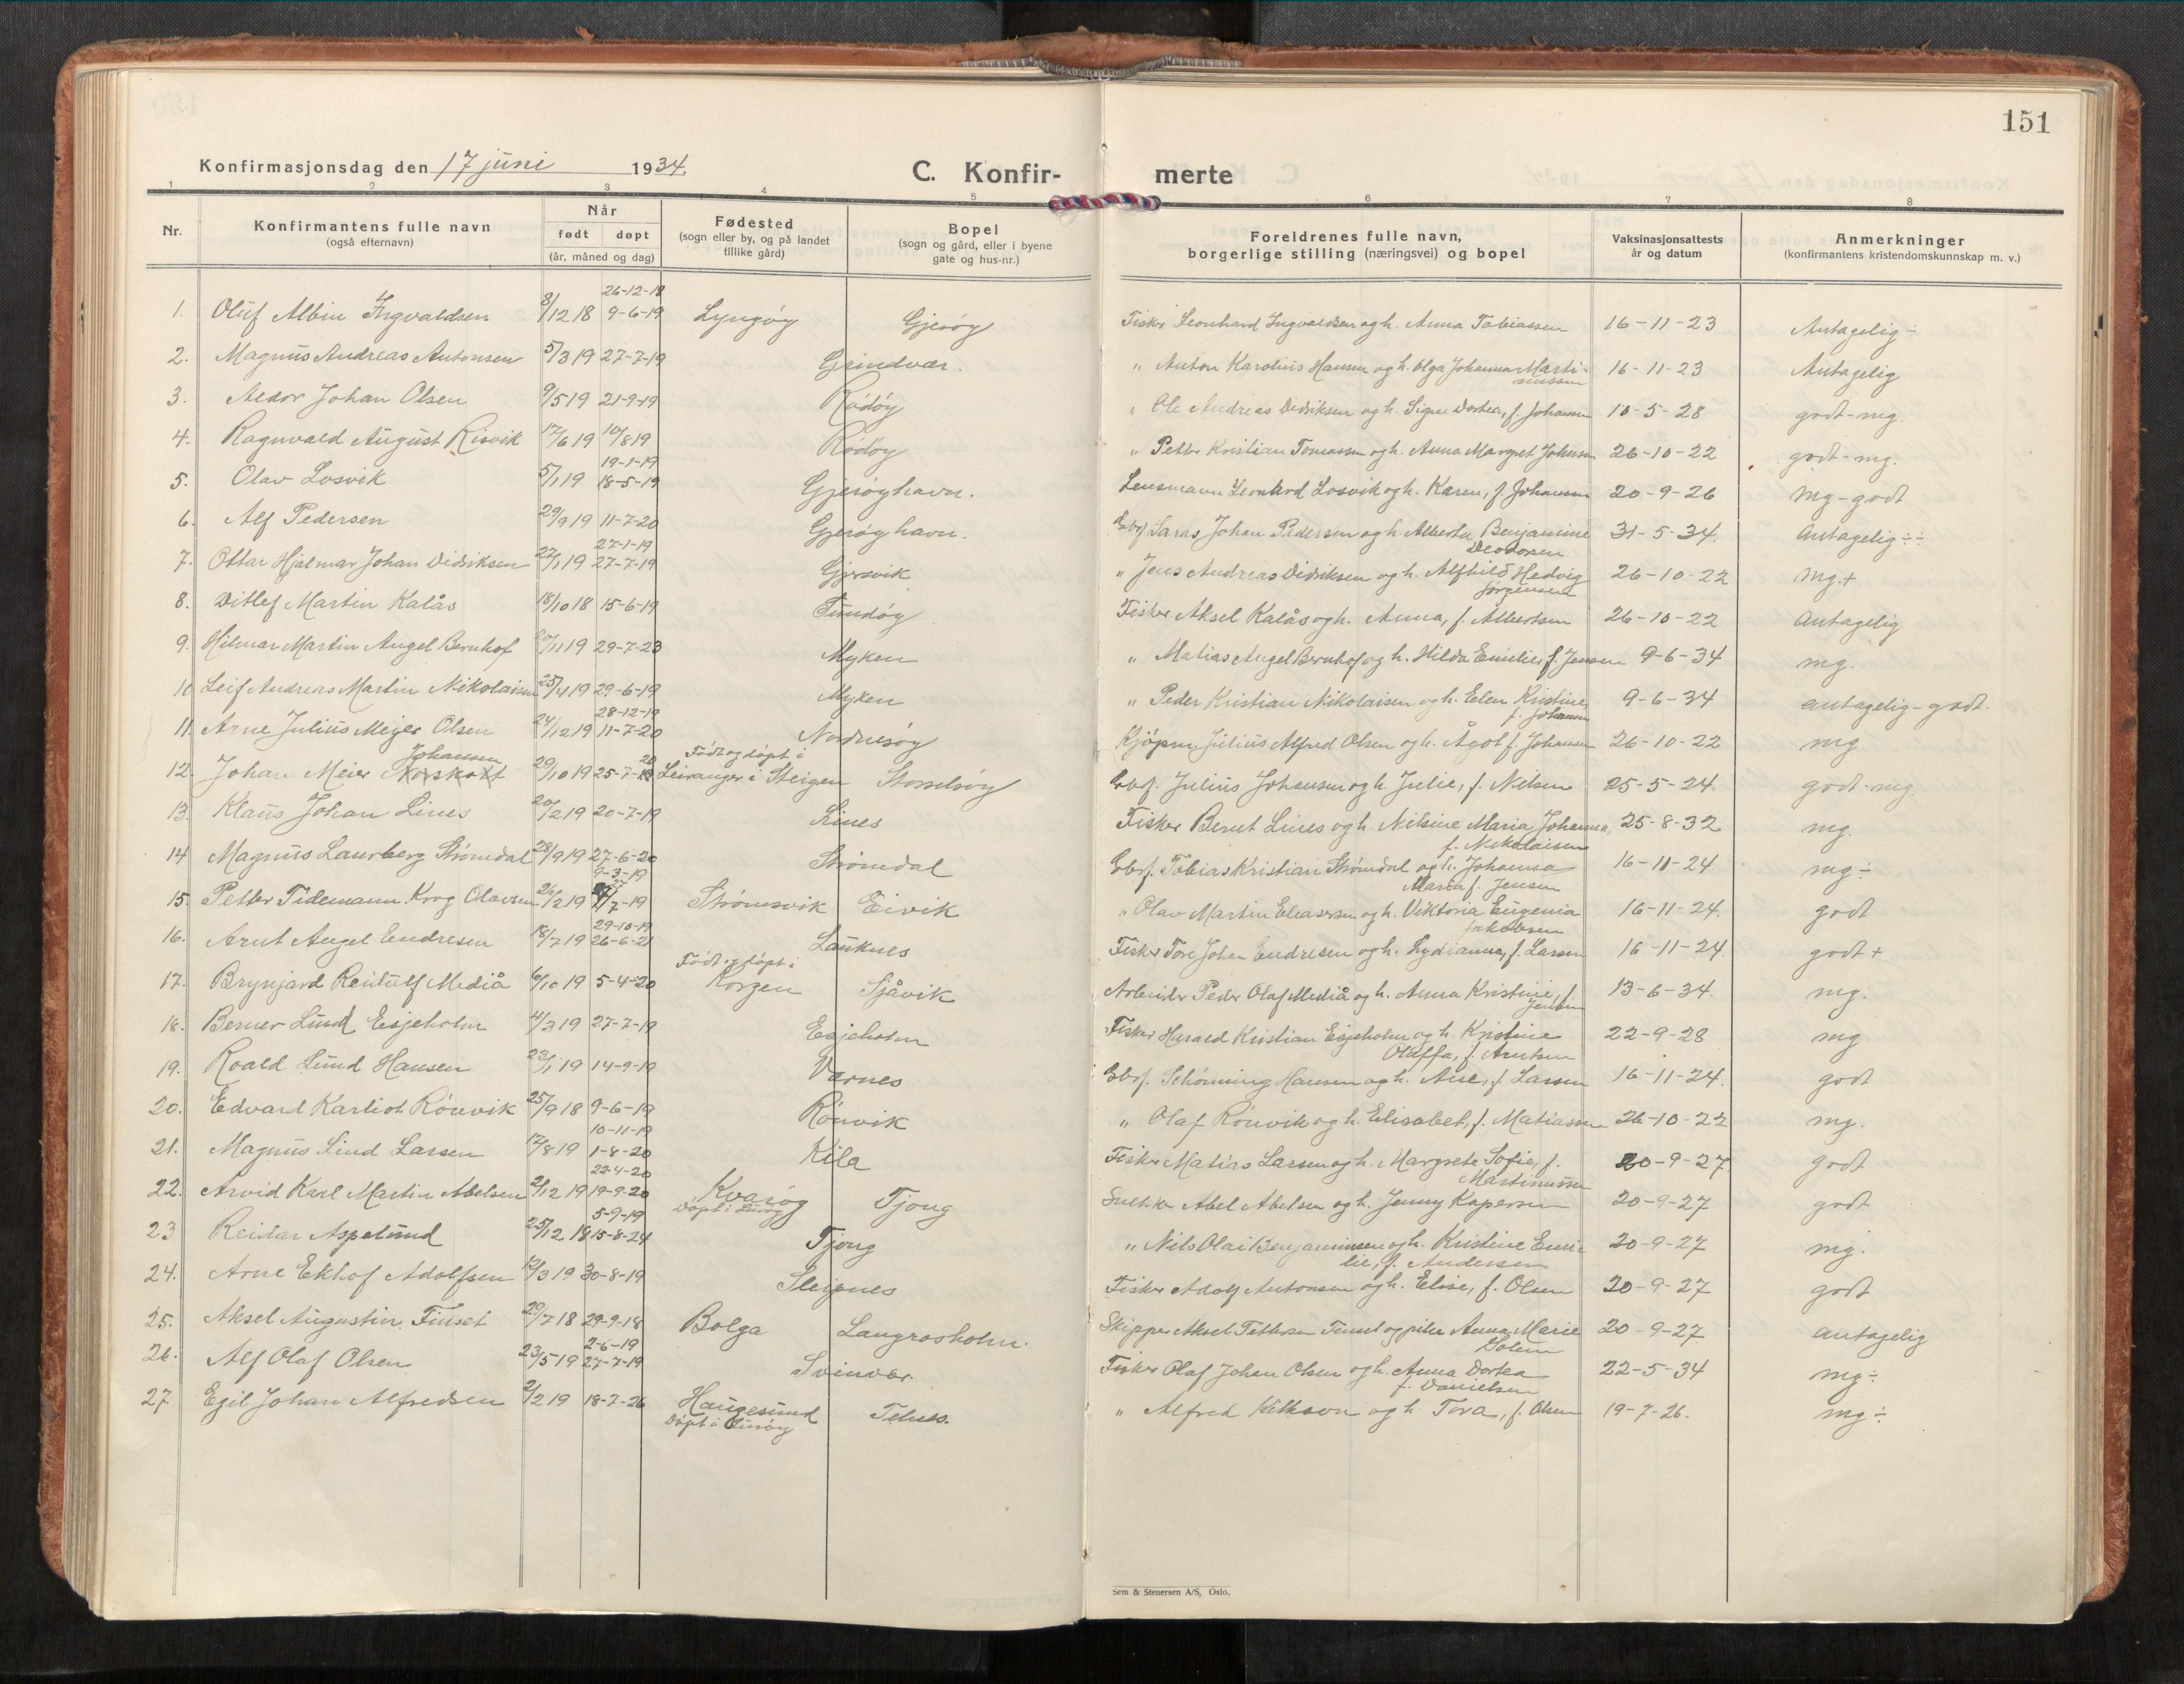 151
Konfirmasjonsdag den 17 juni 1934.
C. Konfir- merte
1 2 3 4 5 6 7 8
Nr.
Konfirmantens fulle navn
(også efternavn)
Når
født døpt
(år, måned og dag)
Fødested
(sogn eller by, og på landet
tillike gård)
Bopel
(sogn og gård, eller i byene
gate og hus-nr.)
Foreldrenes fulle navn,
borgerlige stilling (næringsvei) og bopel
Vaksinasjonsattests
år og datum
Anmerkninger
(konfirmantens kristendomskunnskap m. v.)
26-12-18
1. Oluf Albin Ingvaldsen 8/12 18 9-6-19 Lyngöy Gjeröy Fisker Leonhard Ingvaldsen og h. Anna Tobiassen 16-11-23 Antagelig ÷
2. Magnus Andreas Antonsen 5/3 19 27-7-19 Grindvær. " Anton Karolius Hansen og h. Olga Johanna Marti- 16-11-23 Antagelig
nussen
3. Aldor Johan Olsen 9/5 19 21-9-19 Rödöy " Ole Andreas Didriksen og h. Signe Dortea, f. Johansen 10-5-28 godt-mg.
4. Ragnvald August Risvik 17/6 19 10/8 19 Rödöy " Petter Kristian Tomassen og h. Anna Margret Johnsen 26-10-22 godt-mg.
19-1-19
5. Olav Losvik 5/1 19 18-5-19 Gjeröyhavn. Lensmann Leonhard Losvik og h. Karen, f. Johansen 20-9-26 mg-godt
6. Alf Pedersen 29/9 19 11-7-20 Gjeröyhavn. Gbrf Saras Johan Pedersen og h. Alberta Benjamine 31-5-34. Antagelig ÷÷
Deodorsen
27-1-19
7. Ottar Hjalmar Johan Didriksen 27/1 19 27-7-19 Gjersvik " Jens Andreas Didriksen og h. Alfhild Hedvig 26-10-22 mg.+
Jörgensen
8. Ditlef Martin Kalås 18/10 18 15-6-19 Sundöy Fisker Aksel Kalås og h. Anna, f. Albertsen 26-10-22 Antagelig
9. Hilmar Martin Angel Bernhof 20/11 19 29-7-23 Myken " Matias Angel Bernhof og h. Hilda Emilie, f. Jensen 9-6-34 mg.
10 Leif Andreas Martin Nikolaisen 25/4 19 29-6-19 Myken " Peder Kristian Nikolaisen og h. Elen Kristine, 9-6-34 antagelig-godt.
f. Johansen
28-12-19
11. Arne Julius Meyer Olsen 24/12 19 11-7-20 Nordnesöy Kjöpm. Julius Alfred Olsen og h. Ågot f. Johansen 26-10-22 mg.
Johansen
12. Johan Meier 29/10 19 25-7-20 Födt og döpt i Leiranger i Steigen Storselsöy Gbrf. Julius Johansen og h. Julie, f. Nilsen 25-5-24. godt-mg.
13. Klaus Johan Lines 20/2 19 20-7-19 Lines Fisker Bernt Lines og h. Nilsine Maria Johanna, 25-8-32 mg.
f. Nikolaisen
14 Magnus Laurberg Strömdal 28/9 19 27-6-20 Strömdal Gbrf. Tobias Kristian Strömdal og h. Johanna 16-11-24. mg ÷
Maria f. Jensen
9-3-19
15. Petter Tidemann Krog Olavsen 26/2 19 27/7-19 Strömsvik Eivik " Olav Martin Eleasersen og h. Viktoria Eugenia 16-11-24. godt
Jakobsen
29-10-19
16. Arnt Angel Endresen 18/7 19 26-6-21 Lauknes Fisker Tore Johan Endresen og h. Lydianna, f. Larsen 16-11-24. godt +
17. Brynjard Reidulf Mediå 6/10 19 5-4-20 Födt og döpt i Korgen Sjåvik Arbeider Peder Olaf Mediå og h. Anna Kristine, f. 13-6-34. mg.
Jensen
18. Berner Lund Esjeholm 4/3 19 27-7-19 Esjeholm Fisker Harald Kristian Esjeholm og h. Kristine 22-9-28 mg
Oluffa, f. Arntsen
19. Roald Lund Hansen 23/1 19 14-9-19 Værnes Gbrf. Schönning Hansen og h. Aise, f. Larsen 16-11-24. godt
20. Edvard Karliot Rönvik 25/9 18 9-6-19 Rönvik " Olaf Rönvik og h. Elisabet, f. Matiassen 26-10-22 mg.
10-11-19
21. Magnus Lind Larsen 17/8 19 1-8-20 Kila Fisker Matias Larsen og h. Margrete Sofie, f. 20-9-27 godt
Martinussen
22-4-20
22. Arvid Karl Martin Abelsen 2/12 19 19-9-20 Kvaröy Tjong Abel Abelsen og h. Jenny Kapersen 20-9-27 godt
Döpt i Luröy
5-9-19
23 Reidar Aspelund 25/12 18 15-8-24 Tjong " Nils Olai Benjaminsen og h. Kristine Emi- 20-9-27 mg.
lie, f. Andersen
24. Arne Ekhof Adolfsen 12/3 19 30-8-19 Sleipnes Fisker Adolf Antonsen og h. Elise, f. Olsen 20-9-27 godt
25. Aksel Augustin Finset 20/7 18 29-9-18 Bolga Langrasholm. Skipper Aksel Pettersen Finset og pike Anna Marie 20-9-27 antagelig
Solem
2-6-19
26. Alf Olaf Olsen 23/5 19 27-7-19 Svinvær. Fisker Olaf Johan Olsen og h. Anna Dortea 22-5-34 mg ÷
f. Danielsen
27. Egil Johan Alfredsen 2/2 19 18-7-26 Haugesund Telnes. " Alfred og h. Tora, f. Olsen 19-7-26. mg ÷
Döpt i Luröy
Sem & Stenersen A/S, Oslo.